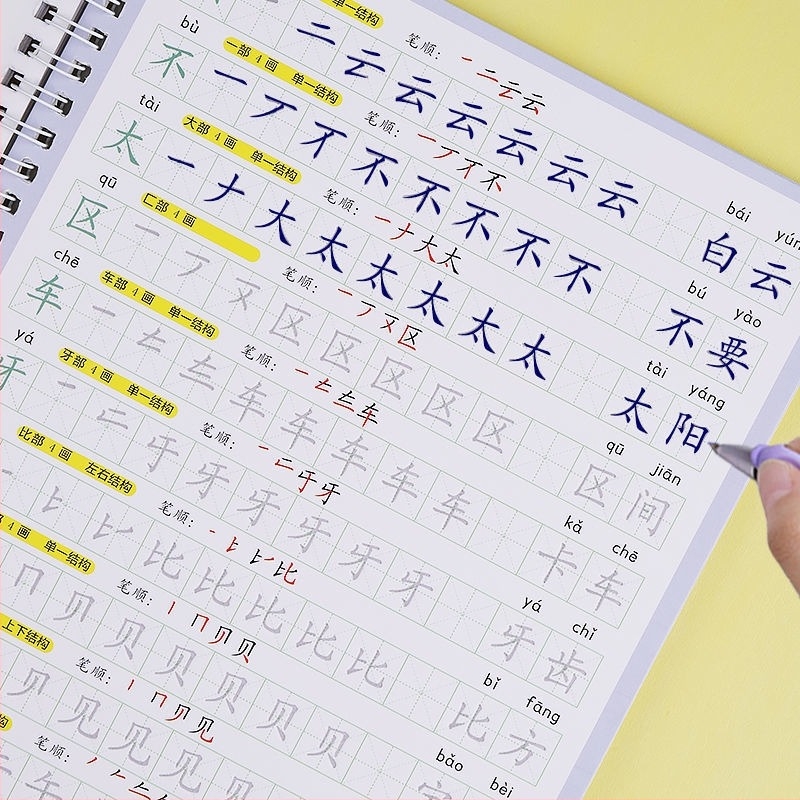 单一结构 笔顺: 一 二 云 云
二 云 云 云 云 云 云
bái yún
白云
bù 一部 4画 单一结构 笔顺: 一 丆 不 不
不 一 丆 不 不 不 不 不
bú yào
不要
tài 大部 4画 单一结构 笔顺: 一 ナ 大 太
太 一 ナ 大 太 太 太 太 太
tài yáng
太阳
qū 匚部 4画 笔顺: 一 丆 区
区 一 丆 区 区 区 区 区
qū jiān
区间
chē 车部 4画 单一结构 笔顺: 一 车
车 一 车 车 车 车 车
kǎ chē
卡车
yá 牙部 4画 单一结构 笔顺: 一 牙
牙 一 牙 牙 牙 牙 牙
yá chǐ
牙齿
比部 4画 左右结构 笔顺: 一 比
比 比 比 比 比
bǐ fāng
比方
4画 单一结构 笔顺: 丨 冂 贝 贝
冂 贝 贝 贝 贝 贝 贝
bǎo bèi
上下结构 笔顺: 丨 冂 贝 见
见 见 见 见
笔顺: